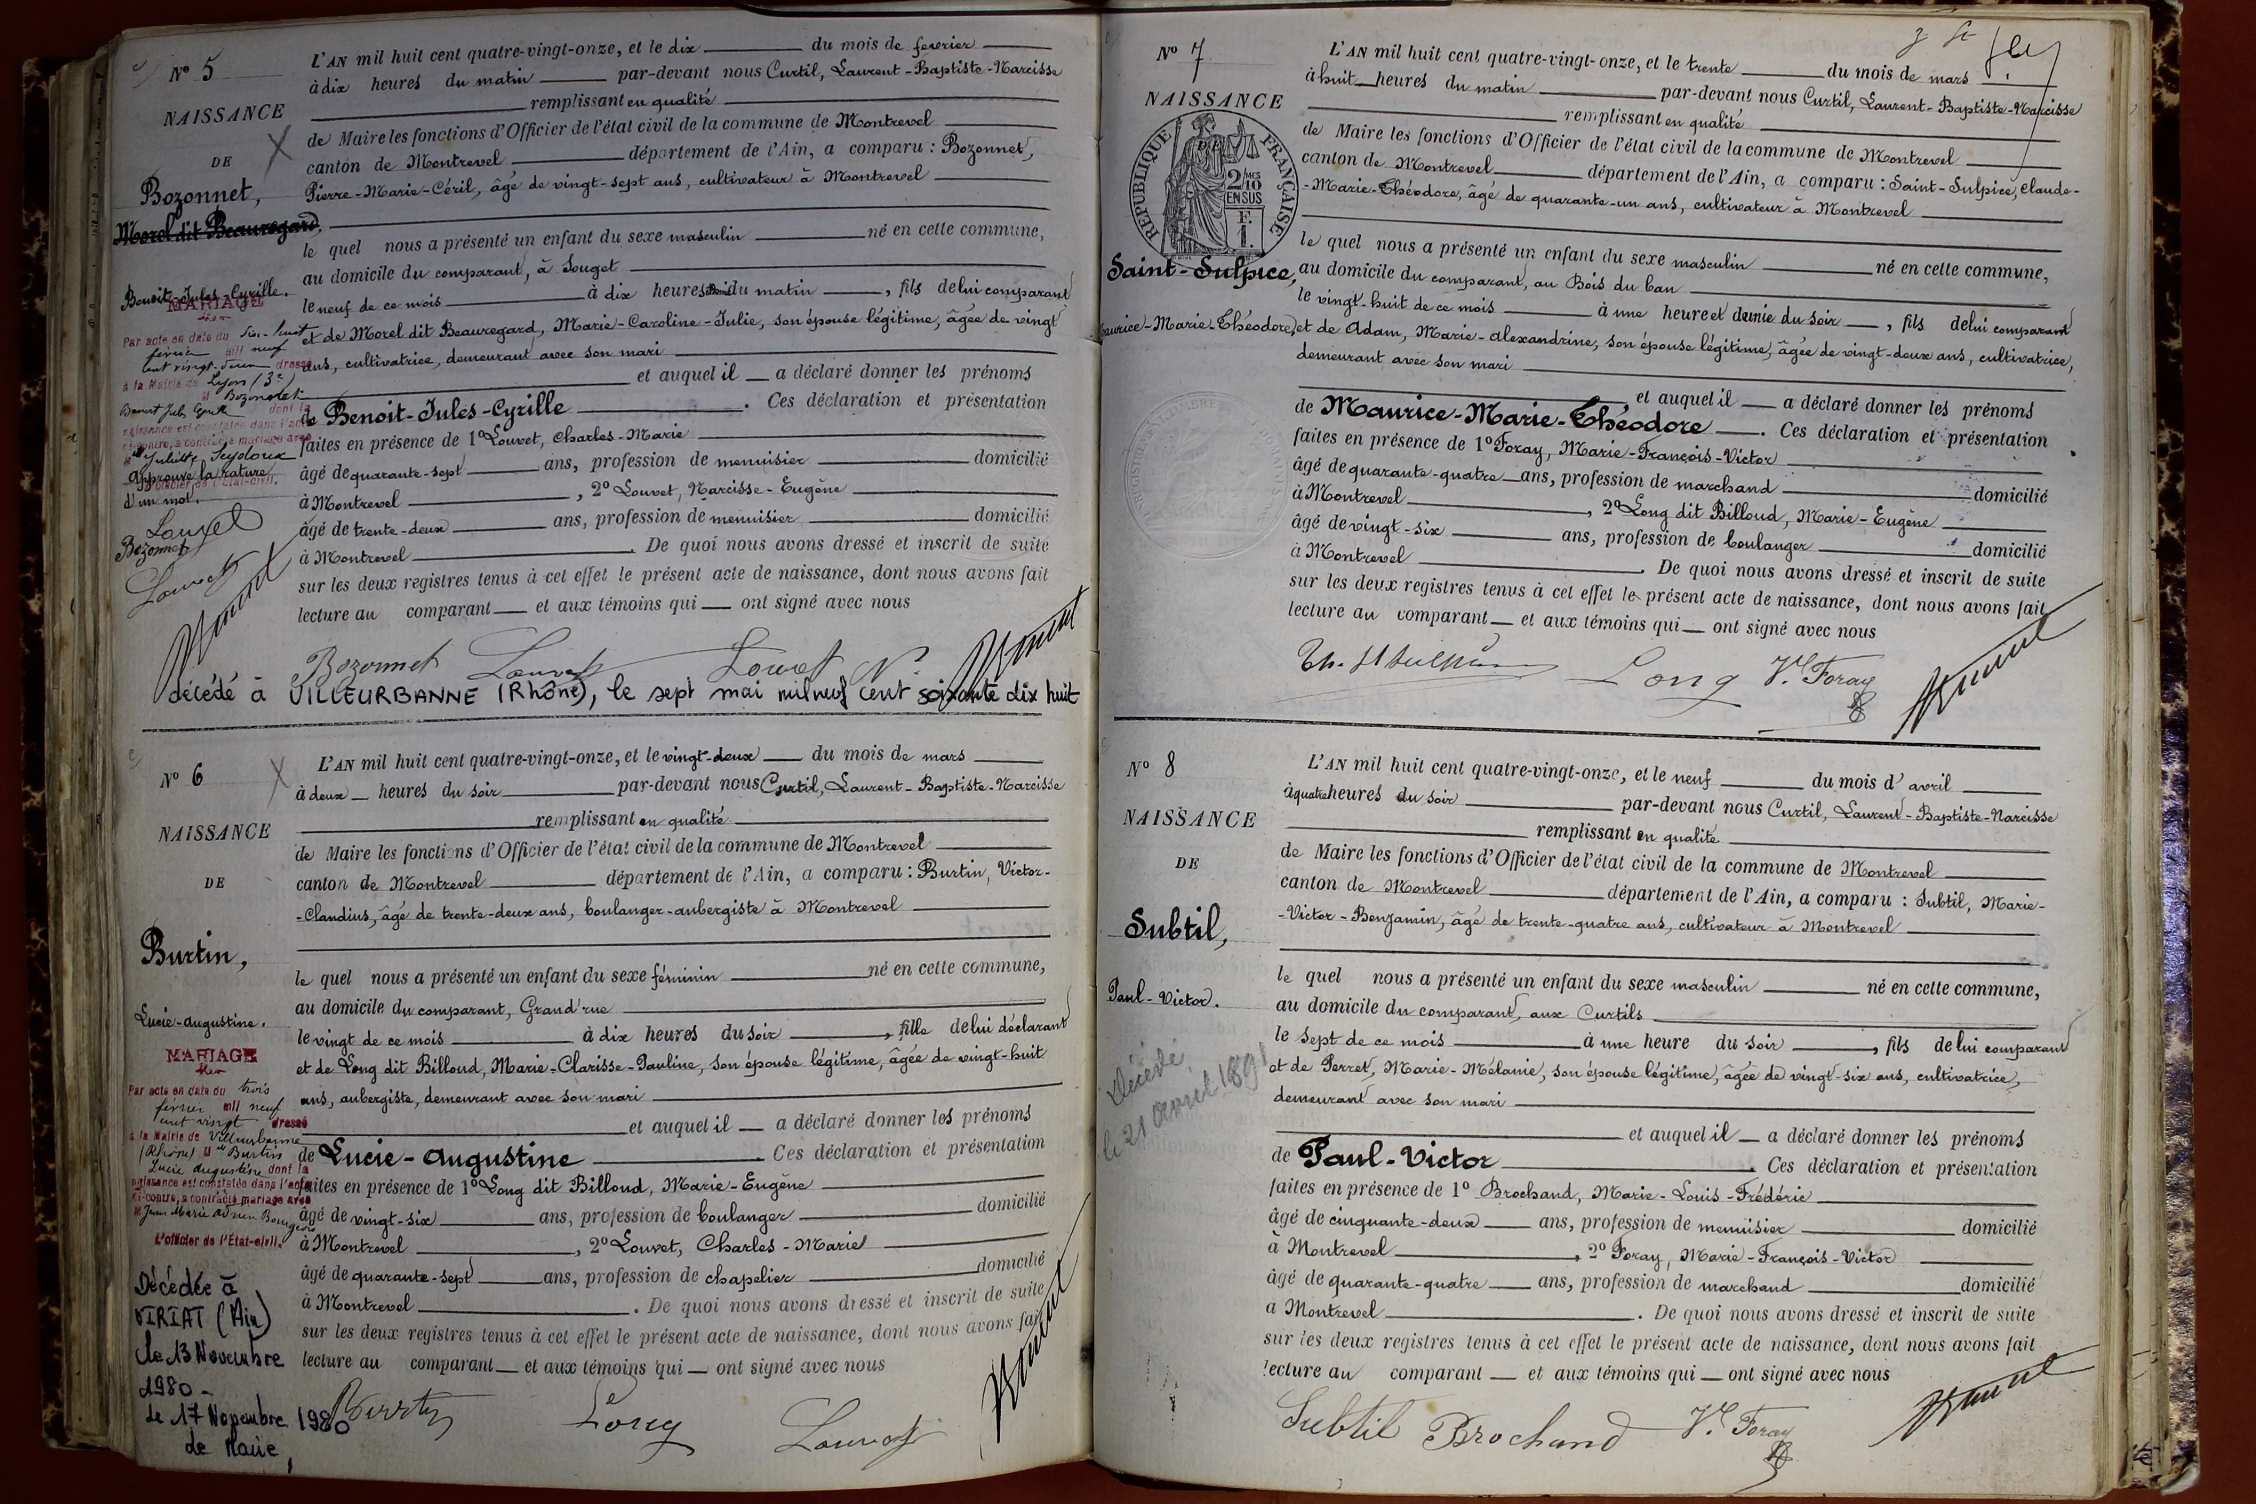 Nº 5
NAISSANCE
DE
Bozonnet,
Morel dit Beauregard,
Benoit-Jules-Cyrille.
MARIAGE
Par acte en date du dix-huit
février mil neuf
cent vingt-deux dressé
à la Mairie de Lyon (3e)
M Bozonnet
Benoit Jules Cyrille dont la
naissance est constatée dans l'acte
ci-contre, a contracté mariage avec
Juliette Seydoux
L'officier de l'État-civil.
Approuvé la rature
d'un mot.
Louvet
Bozonnet
Louvet
L'AN mil huit cent quatre-vingt-onze, et le dix du mois de fevrier
à dix heures du matin par-devant nous Curtil, Laurent-Baptiste-Narcisse
remplissant en qualité
de Maire les fonctions d'Officier de l'état civil de la commune de Montrevel
canton de Montrevel département de l'Ain, a comparu : Bozonnet,
Pierre-Marie-Céril, âgé de vingt-sept ans, cultivateur à Montrevel
le quel nous a présenté un enfant du sexe masculin né en cette commune,
au domicile du comparant, à Souget
le neuf de ce mois à dix heures du matin, fils de lui comparant
et de Morel dit Beauregard, Marie-Caroline-Julie, son épouse légitime, âgée de vingt
ans, cultivatrice, demeurant avec son mari
et auquel il a déclaré donner les prénoms
de Benoit-Jules-Cyrille. Ces déclaration et présentation
faites en présence de 1º Louvet, Charles-Marie
âgé de quarante-sept ans, profession de menuisier domicilié
à Montrevel, 2º Louvet, Narcisse-Eugène
âgé de trente-deux ans, profession de menuisier domicilié
à Montrevel. De quoi nous avons dressé et inscrit de suite
sur les deux registres tenus à cet effet le présent acte de naissance, dont nous avons fait
lecture au comparant et aux témoins qui ont signé avec nous
Bozonnet Louvet Louvet N.
décédé à VILLEURBANNE (Rhône), le sept mai mil neuf cent soixante dix huit
Nº 6
NAISSANCE
DE
Burtin,
Lucie-Augustine.
MARIAGE
Par acte en date du trois
février mil neuf
cent vingt dressé
à la Mairie de Villeurbanne
(Rhône) M lle Burtin
Lucie Augustine dont la
naissance est constatée dans l'acte
ci-contre, a contracté mariage avec
M Jean Marie Bourgeois
L'officier de l'État-civil.
Décédée à
VIRIAT (Ain)
le 13 Novembre
1980 -
Le 17 Novembre 1980
de Maire,
L'AN mil huit cent quatre-vingt-onze, et le vingt-deux du mois de mars
à deux heures du soir par-devant nous Curtil, Laurent-Baptiste-Narcisse
remplissant en qualité
de Maire les fonctions d'Officier de l'état civil de la commune de Montrevel
canton de Montrevel département de l'Ain, a comparu : Burtin, Victor-
-Claudius, âgé de trente-deux ans, boulanger-aubergiste à Montrevel
le quel nous a présenté un enfant du sexe féminin né en cette commune,
au domicile du comparant, Grand'rue
le vingt de ce mois à dix heures du soir, fille de lui déclarant
et de Long dit Billoud, Marie-Clarisse-Pauline, son épouse légitime, âgée de vingt-huit
ans, aubergiste, demeurant avec son mari
et auquel il a déclaré donner les prénoms
de Lucie-Augustine Ces déclaration et présentation
faites en présence de 1º Long dit Billoud, Marie-Eugène
âgé de vingt-six ans, profession de boulanger domicilié
à Montrevel, 2º Louvet, Charles-Marie
âgé de quarante-sept ans, profession de chapelier domicilié
à Montrevel. De quoi nous avons dressé et inscrit de suite
sur les deux registres tenus à cet effet le présent acte de naissance, dont nous avons fait
lecture au comparant et aux témoins qui ont signé avec nous
Burtin Long Louvet
Nº 7
NAISSANCE
RÉPUBLIQUE FRANÇAISE
2/10 MES
EN SUS
F.
1.
Saint-Sulpice,
Maurice-Marie-Théodore,
L'AN mil huit cent quatre-vingt-onze, et le trente du mois de mars
à huit heures du matin par-devant nous Curtil, Laurent-Baptiste-Narcisse
remplissant en qualité
de Maire les fonctions d'Officier de l'état civil de la commune de Montrevel
canton de Montrevel département de l'Ain, a comparu : Saint-Sulpice, Claude-
-Marie-Théodore, âgé de quarante-un ans, cultivateur à Montrevel
le quel nous a présenté un enfant du sexe masculin né en cette commune,
au domicile du comparant, au Bois du ban
le vingt-huit de ce mois à une heure et demie du soir, fils de lui comparant
et de Adam, Marie-Alexandrine, son épouse légitime, âgée de vingt-deux ans, cultivatrice,
demeurant avec son mari
et auquel il a déclaré donner les prénoms
de Maurice-Marie-Théodore. Ces déclaration et présentation
faites en présence de 1º Foray, Marie-François-Victor
âgé de quarante-quatre ans, profession de marchand domicilié
à Montrevel, 2º Long dit Billoud, Marie-Eugène
âgé de vingt-six ans, profession de boulanger domicilié
à Montrevel. De quoi nous avons dressé et inscrit de suite
sur les deux registres tenus à cet effet le présent acte de naissance, dont nous avons fait
lecture au comparant et aux témoins qui ont signé avec nous
Th. St Sulpice Long Vr. Foray
Nº 8
NAISSANCE
DE
Subtil,
Paul-Victor.
Décédé
le 21 avril 1891
L'AN mil huit cent quatre-vingt-onze, et le neuf du mois d'avril
à quatre heures du soir par-devant nous Curtil, Laurent-Baptiste-Narcisse
remplissant en qualité
de Maire les fonctions d'Officier de l'état civil de la commune de Montrevel
canton de Montrevel département de l'Ain, a comparu : Subtil, Marie-
-Victor-Benjamin, âgé de trente-quatre ans, cultivateur à Montrevel
le quel nous a présenté un enfant du sexe masculin né en cette commune,
au domicile du comparant, aux Curtils
le sept de ce mois à une heure du soir, fils de lui comparant
et de Perret, Marie-Mélanie, son épouse légitime, âgée de vingt-six ans, cultivatrice,
demeurant avec son mari
et auquel il a déclaré donner les prénoms
de Paul-Victor. Ces déclaration et présentation
faites en présence de 1º Brochand, Marie-Louis-Frédéric
âgé de cinquante-deux ans, profession de menuisier domicilié
à Montrevel, 2º Foray, Marie-François-Victor
âgé de quarante-quatre ans, profession de marchand domicilié
a Montrevel. De quoi nous avons dressé et inscrit de suite
sur les deux registres tenus à cet effet le présent acte de naissance, dont nous avons fait
lecture au comparant et aux témoins qui ont signé avec nous
Subtil Brochand Vr. Foray